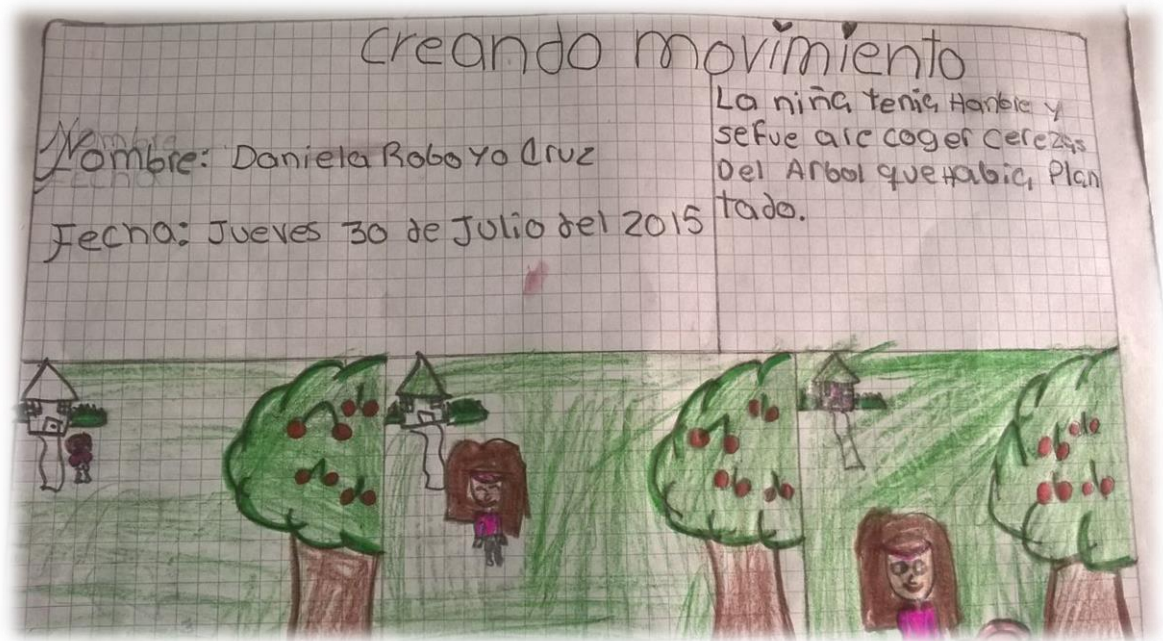 Creando movimiento
Nombre: Daniela Roboyo Cruz
Fecha: Jueves 30 de Julio del 2015
La niña tenia Hanbre y
sefue a re coger cerezas
Del Arbol que Habia Plan
tado.